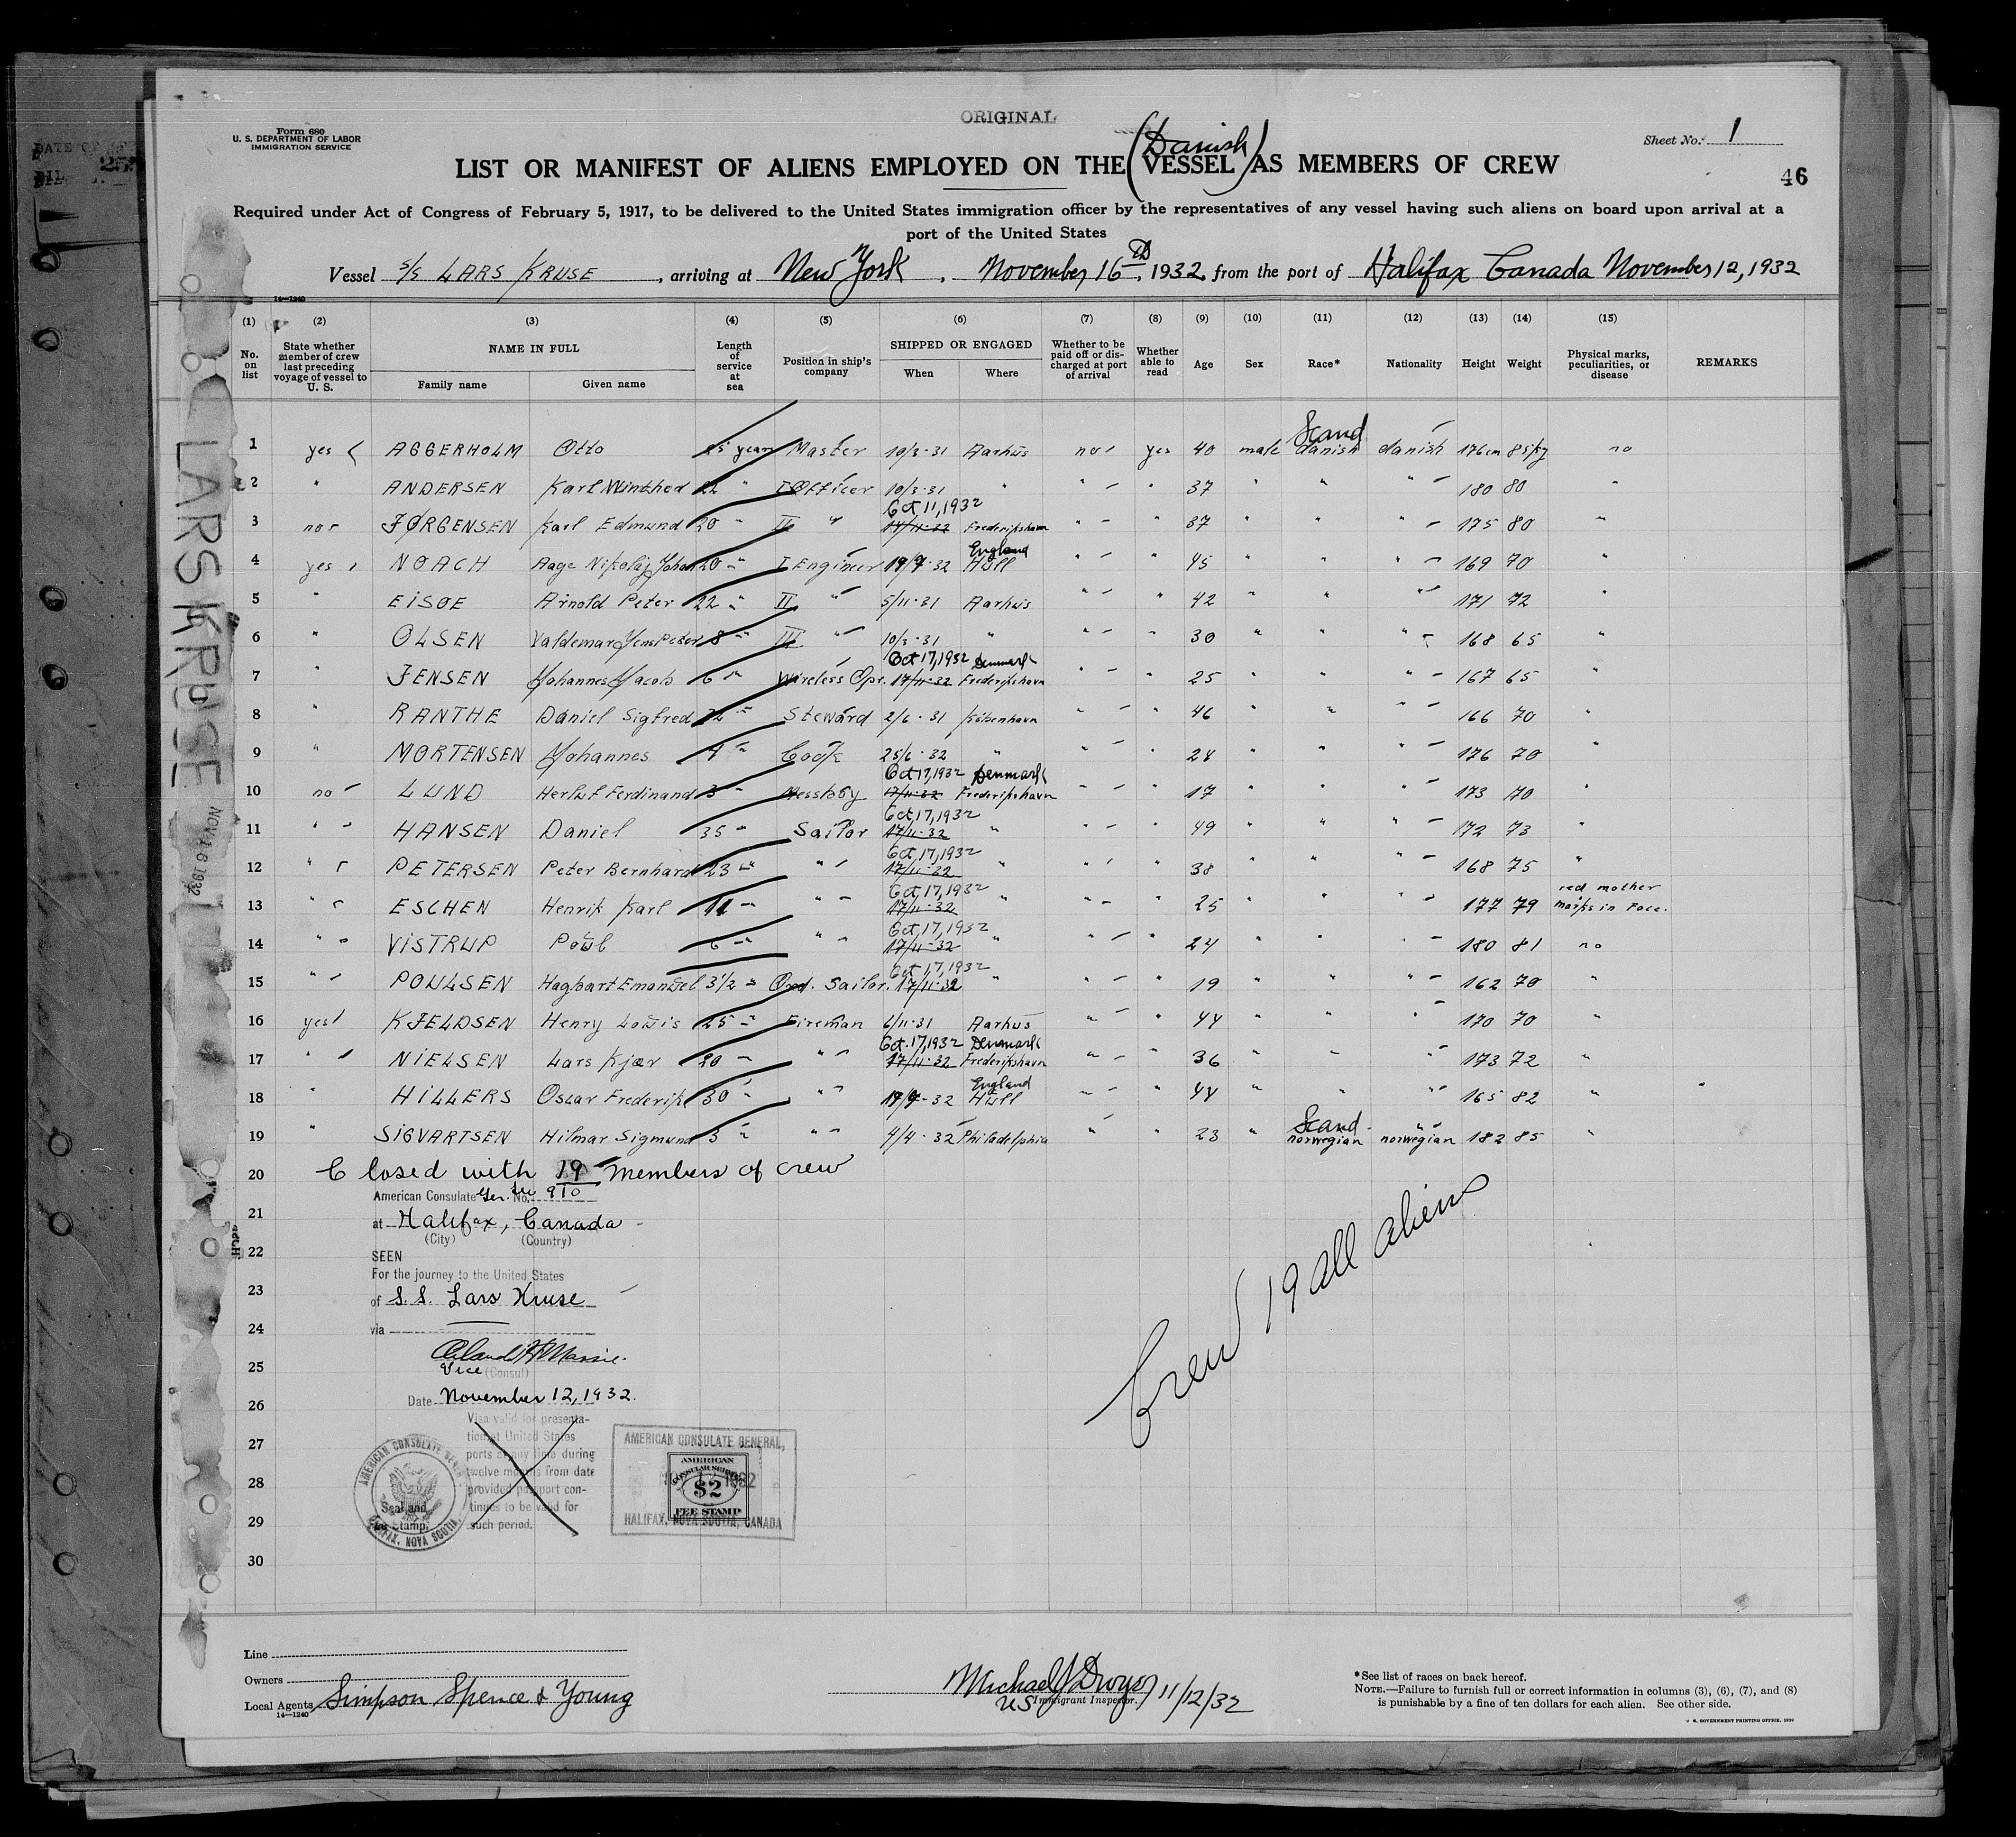 ORIGINAL
Form 680
U. S. DEPARTMENT OF LABOR
IMMIGRATION SERVICE
Sheet No. 1
(Danish)
LIST OR MANIFEST OF ALIENS EMPLOYED ON THE VESSEL AS MEMBERS OF CREW
46
Required under Act of Congress of February 5, 1917, to be delivered to the United States immigration officer by the representatives of any vessel having such aliens on board upon arrival at a
port of the United States
Vessel S/S LARS KRUSE, arriving at New York, November 16th, 1932, from the port of Halifax Canada November 12, 1932
14—1240
(1) (2) (3) (4) (5) (6) (7) (8) (9) (10) (11) (12) (13) (14) (15)
No. on list
State whether member of crew last preceding voyage of vessel to U. S.
NAME IN FULL
Family name Given name
Length of service at sea
Position in ship's company
SHIPPED OR ENGAGED
When Where
Whether to be paid off or discharged at port of arrival
Whether able to read
Age Sex Race* Nationality Height Weight
Physical marks, peculiarities, or disease
REMARKS
Scand
1 yes AGGERHOLM Otto 25 years Master 10/3-31 Aarhus no yes 40 male danish danish 176cm 85kg no
2 " ANDERSEN Karl Winthed 22 " I Officer 10/3-31 " " " 37 " " " 180 80 "
Oct 11, 1932
3 no JØRGENSEN Karl Edmund 20 " II " 17/11-32 Frederikshavn " " 37 " " " 175 80 "
England
4 yes NOACH Aage Nikolaj Johan 20 " I Engineer 19/9-32 Hull " " 45 " " " 169 70 "
5 " EISOE Arnold Peter 22 " II " 5/11-31 Aarhus " " 42 " " " 171 72 "
6 " OLSEN Valdemar Jens Peter 8 " III " 10/3-31 " " " 30 " " " 168 65 "
Oct 17, 1932 Denmark
7 " JENSEN Johannes Jacob 6 " Wireless Opr. 17/11-32 Frederikshavn " " 25 " " " 167 65
8 " RANTHE Daniel Sigfred 22 " Steward 2/6-31 København " " 46 " " " 166 70 "
9 " MORTENSEN Johannes 9 " Cook 25/6-32 " " " 24 " " " 176 70 "
Oct 17, 1932 Denmark
10 no LUND Herluf Ferdinand 3 " Messboy 17/11-32 Frederikshavn " " 17 " " " 173 70 "
Oct, 17, 1932
11 " HANSEN Daniel 35 " Sailor 17/11-32 " " " 49 " " " 172 73 "
Oct, 17, 1932
12 " PETERSEN Peter Bernhard 23 " " 17/11-32 " " " 38 " " " 168 75 "
Oct, 17, 1932 red mother
13 " ESCHEN Henrik Karl 11 " " 17/11-32 " " " 25 " " " 177 79 marks in Face.
Oct, 17, 1932
14 " VISTRUP Poul 6 " " 17/11-32 " " " 24 " " " 180 81 no
Oct, 17, 1932
15 " POULSEN Hagbart Emanuel 3 1/2 " Ord. Sailor. 17/11-32 " " " 19 " " " 162 70 "
16 yes KJELDSEN Henry Louis 25 " Fireman 6/11-31 Aarhus " " 44 " " " 170 70 "
Oct. 17, 1932 Denmark
17 " NIELSEN Lars Kjær 20 " " 17/11-32 Frederikshavn " " 36 " " " 173 72 "
England
18 " HILLERS Oscar Frederik 30 " " 19/9-32 Hull " " 44 " " " 165 82 "
Scand
19 " SIGVARTSEN Hilmar Sigmund 3 " " 4/4-32 Philadelphia " " 23 " norwegian norwegian 182 85 "
20 Closed with 19 members of crew
American Consulate Gen. No. 910
21 at Halifax, Canada
(City) (Country)
22 SEEN
For the journey to the United States
23 of S.S. Lars Kruse
24 via
25 Vice (Consul)
26 Date November 12, 1932.
Visa valid for presentation at United States ports at any time during twelve months from date provided passport continues to be valid for such period.
27
28
29
30
AMERICAN CONSULATE GENERAL
HALIFAX, NOVA SCOTIA
Seal and
Fee Stamp.
AMERICAN CONSULATE GENERAL,
AMERICAN
CONSULAR SERVICE
$2
FEE STAMP
HALIFAX, NOVA SCOTIA, CANADA
Crew 19 all aliens
LARS KRUSE
NOV 16 1932
Line
Owners
Local Agents Simpson Spence & Young
14—1240
Michael J Dwyer 11/12/32
US Immigrant Inspector.
*See list of races on back hereof.
NOTE.—Failure to furnish full or correct information in columns (3), (6), (7), and (8)
is punishable by a fine of ten dollars for each alien. See other side.
U. S. GOVERNMENT PRINTING OFFICE.